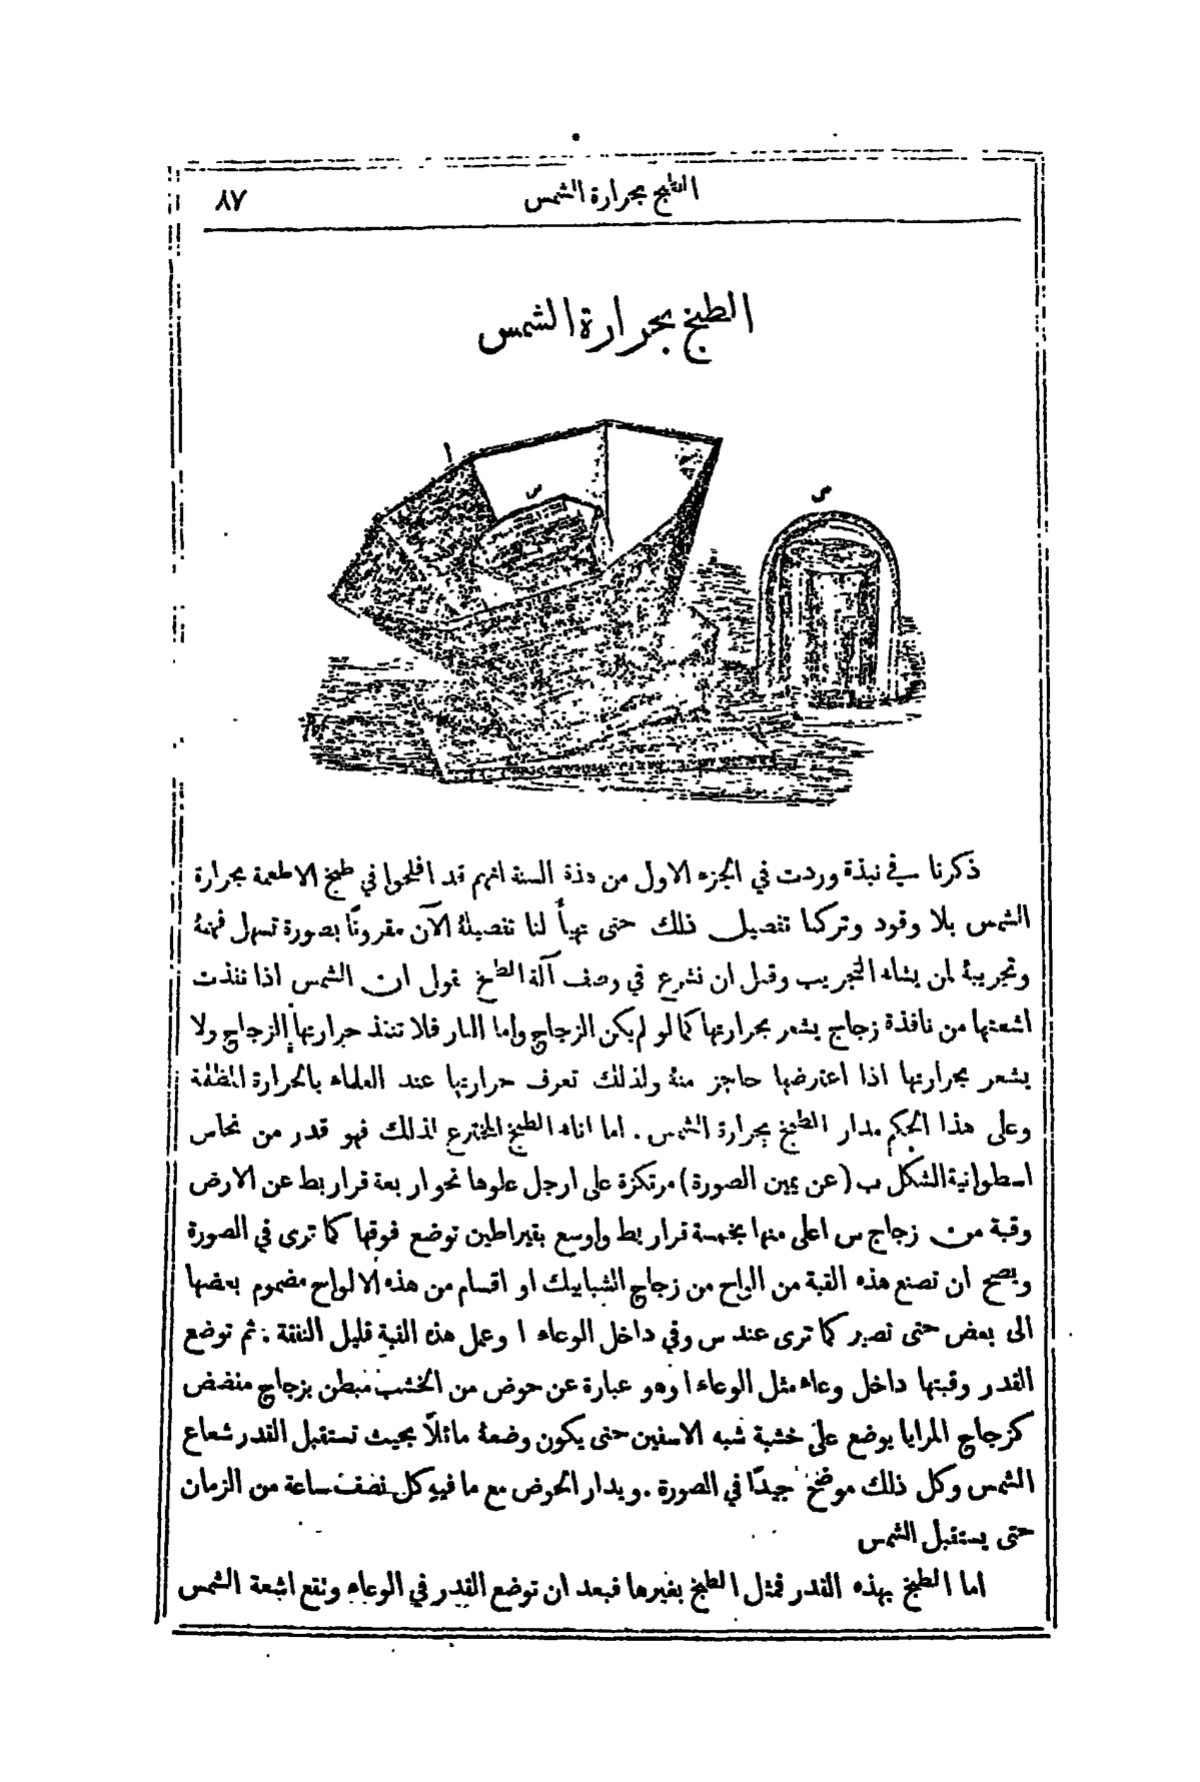 الطبخ بحرارة الشمس
٨٧
الطبخ بحرارة الشمس
ا
س
س
ذكرنا في نبذة وردت في الجزء الاول من هذة السنة انهم قد افلحوا في طبخ الاطعمة بحرارة
الشمس بلا وقود وتركنا تفصيل ذلك حتى تهيأ لنا تفصيلهُ الآن مقرونًا بصورة تسهل فهمهُ
وتجريبهُ لمن يشاء التجريب وقبل ان نشرع في وصف آلة الطبخ نقول ان الشمس اذا نفذت
اشعتها من نافذة زجاج يشعر بحرارتها كما لو لم يكن الزجاج واما النار فلا تنفذ حرارتها الزجاج ولا
يشعر بحرارتها اذا اعترضها حاجز منهُ ولذلك تعرف حرارتها عند العلماء بالحرارة المظلمة
وعلى هذا الحكم مدار الطبخ بحرارة الشمس . اما اناء الطبخ المخترع لذلك فهو قدر من نحاس
اسطوانية الشكل ب (عن يمين الصورة) مرتكزة على ارجل علوها نحو اربعة قراريط عن الارض
وقبة من زجاج س اعلى منها بخمسة قراريط واوسع بقيراطين توضع فوقها كما ترى في الصورة
ويصح ان تصنع هذه القبة من الواح من زجاج الشبابيك او اقسام من هذه الالواح مضموم بعضها
الى بعض حتى تصير كما ترى عند س وفي داخل الوعاء ا وعمل هذه القبة قليل النفقة . ثم توضع
القدر وقبتها داخل وعاء مثل الوعاء ا وهو عبارة عن حوض من الخشب مبطن بزجاج مفضض
كزجاج المرايا يوضع على خشبة شبه الاسفين حتى يكون وضعهُ مائلًا بحيث تستقبل القدر شعاع
الشمس وكل ذلك موضح جيدًا في الصورة . ويدار الحوض مع ما فيهِ كل نصف ساعة من الزمان
حتى يستقبل الشمس
اما الطبخ بهذه القدر فمثل الطبخ بغيرها فبعد ان توضع القدر في الوعاء وتقع اشعة الشمس